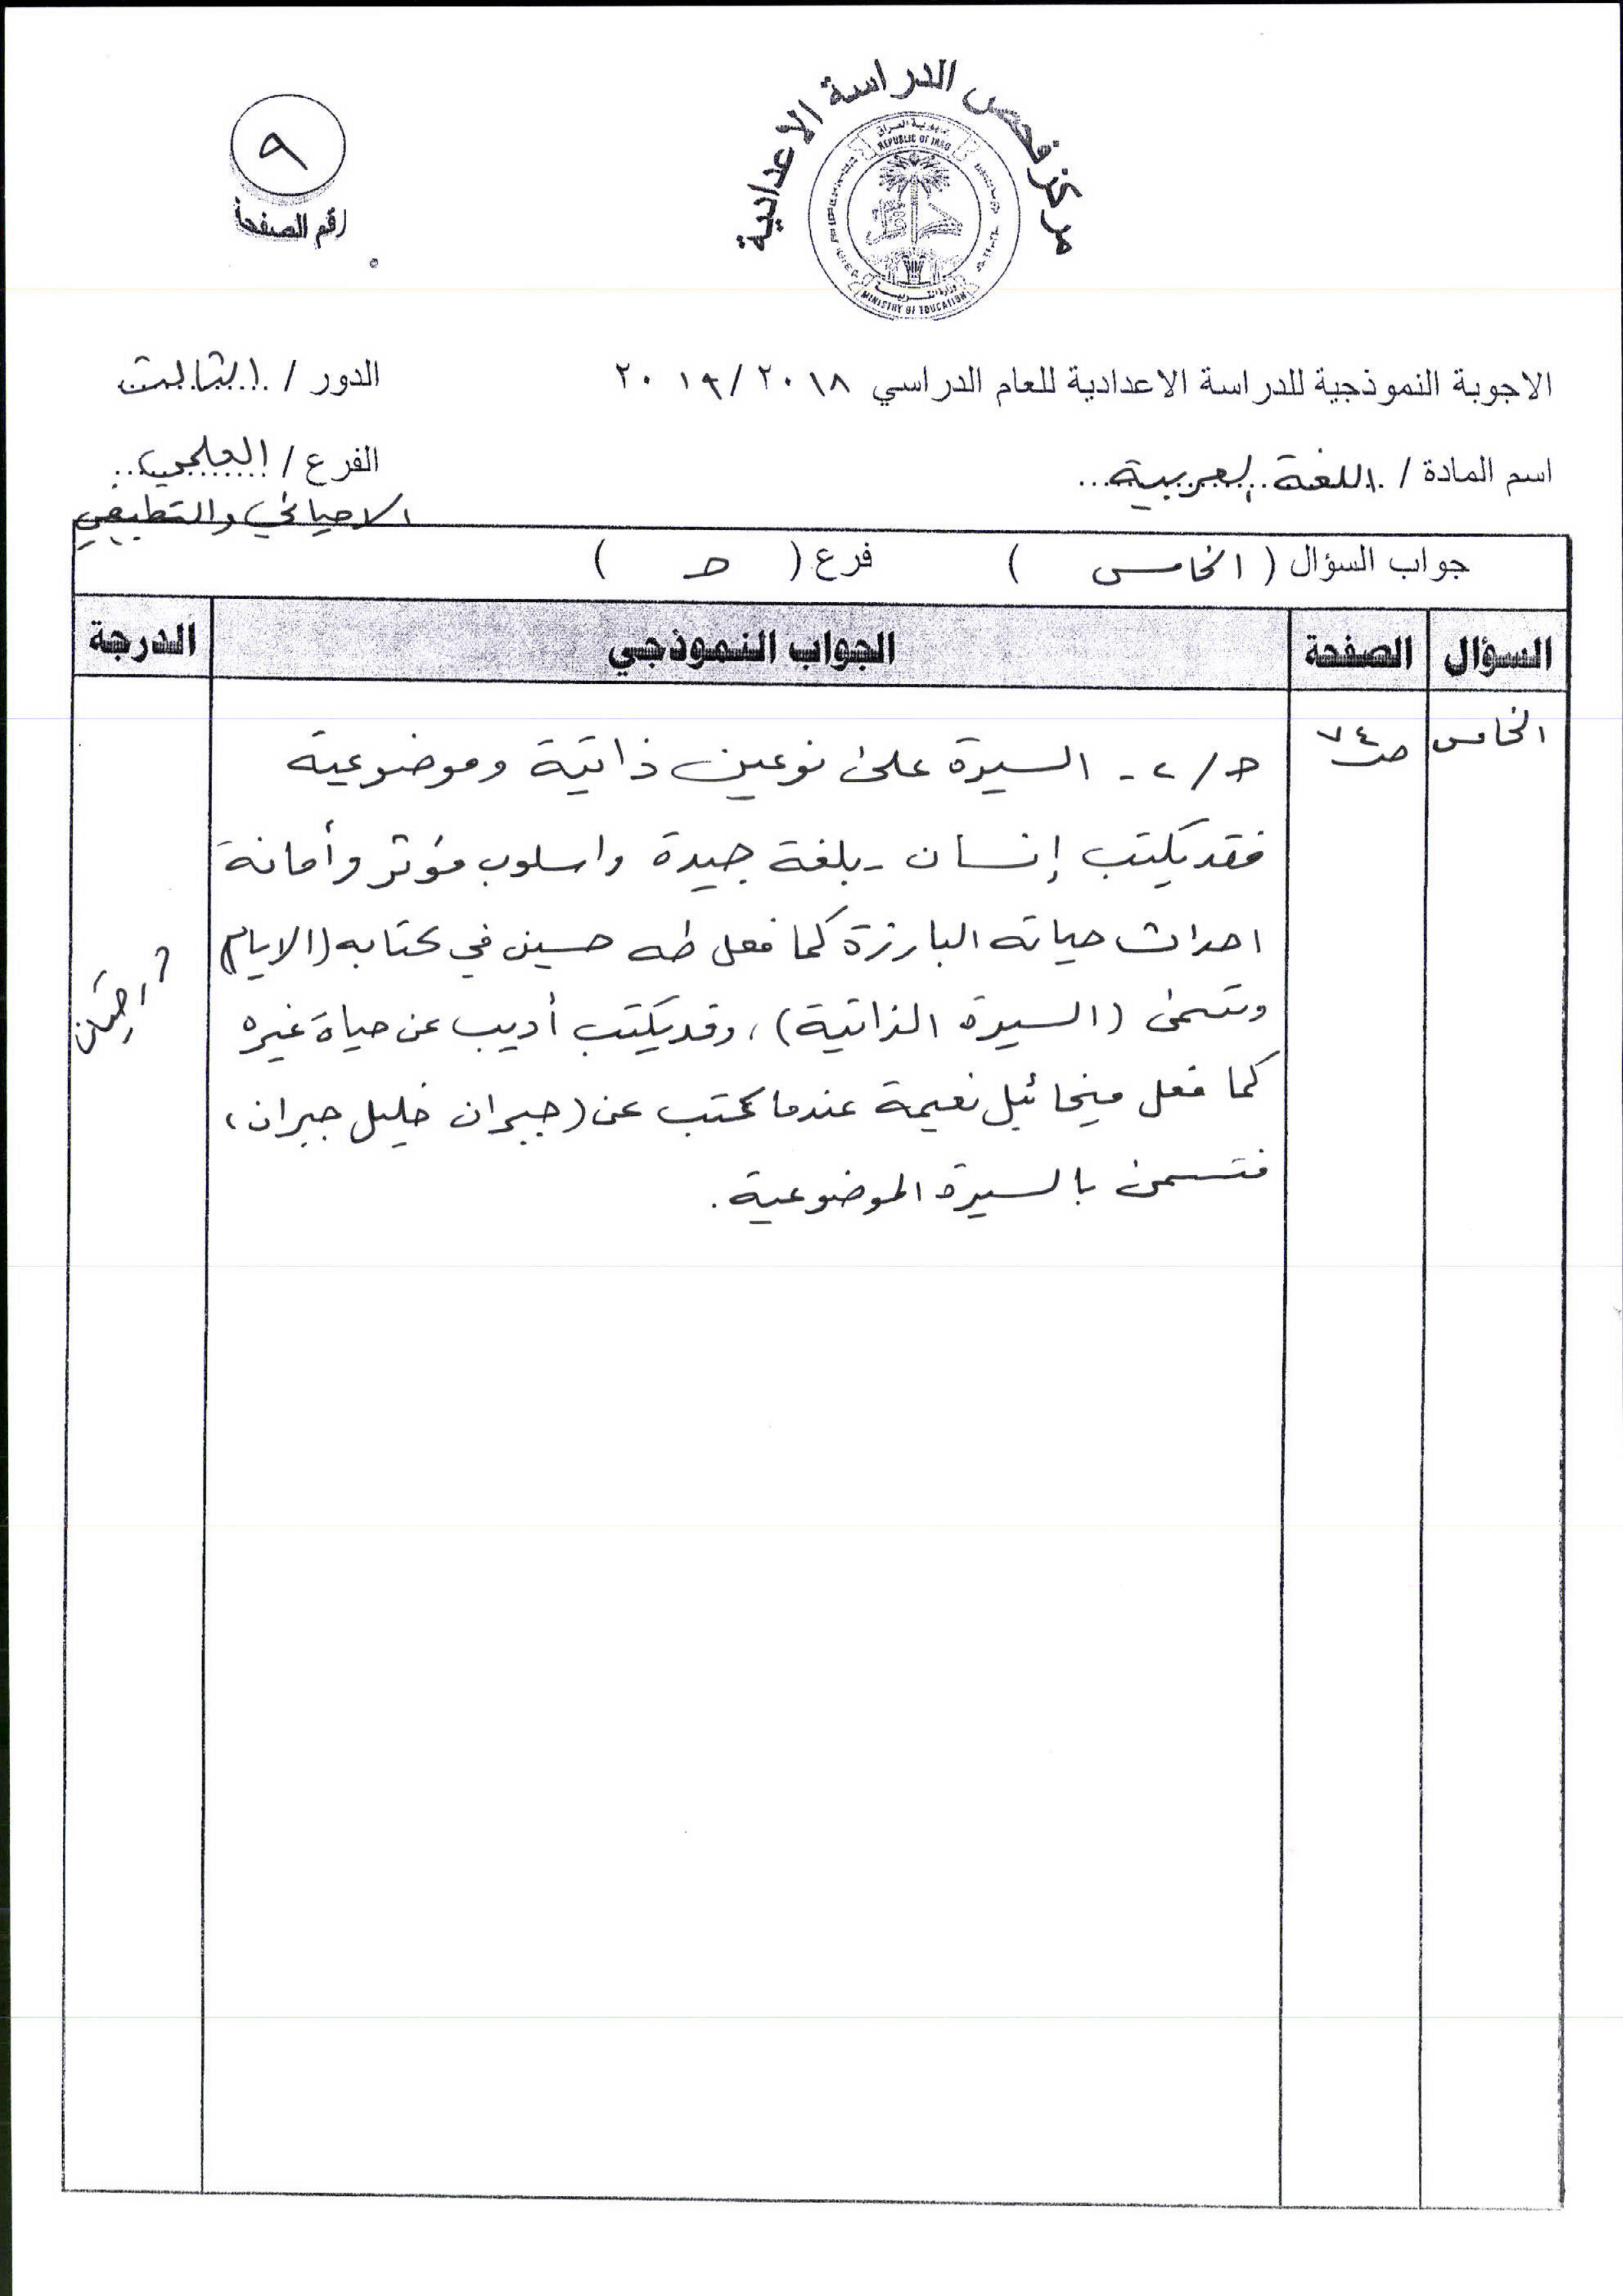 مركز فحص الدراسة الاعدادية
جمهورية العراق
REPUBLIC OF IRAQ
وزارة التربية
MINISTRY OF EDUCATION
٩
رقم الصفحة
الاجوبة النموذجية للدراسة الاعدادية للعام الدراسي ٢٠١٨ / ٢٠١٩
الدور / الثالث
اسم المادة / اللغة العربية
الفرع / العلمي
الاحيائي والتطبيقي
جواب السؤال ( الخامس ) فرع ( حـ )
السؤال الصفحة الجواب النموذجي الدرجة
الخامس ص٧٤ حـ / ٢ - السيرة على نوعين ذاتية وموضوعية
فقد يكتب إنسان - بلغة جيدة واسلوب مؤثر وأمانة
احداث حياته البارزة كما فعل طه حسين في كتابه (الايام)
وتسمى (السيرة الذاتية)، وقد يكتب أديب عن حياة غيره
كما فعل ميخائيل نعيمة عندما كتب عن (جبران خليل جبران،
فتسمى بالسيرة الموضوعية.